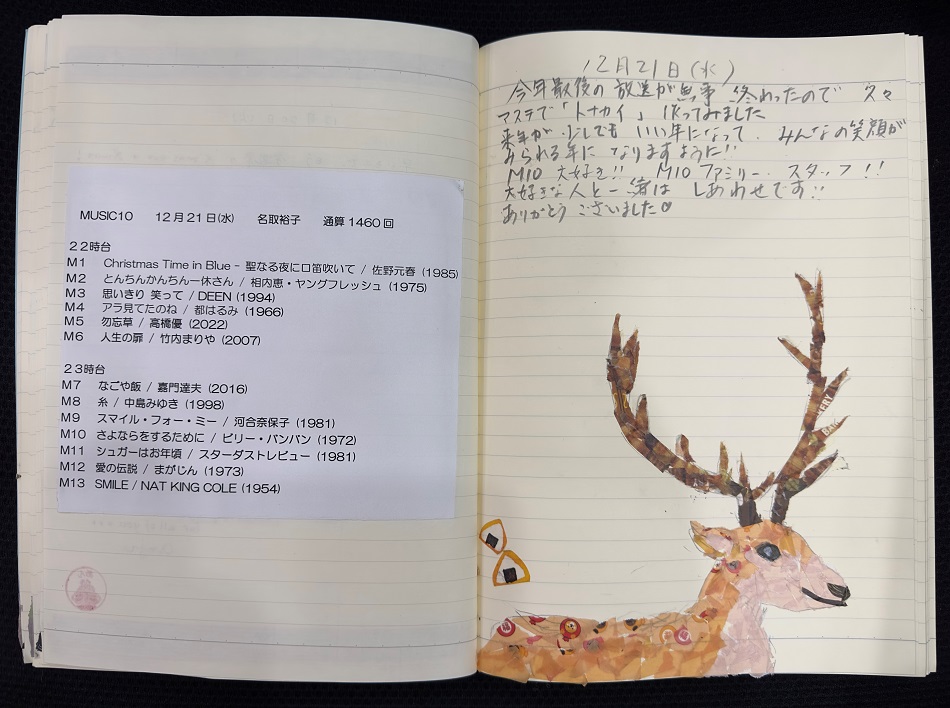 MUSIC10 12月21日(水) 名取裕子 通算1460回
22時台
M1 Christmas Time in Blue - 聖なる夜に口笛吹いて / 佐野元春 (1985)
M2 とんちんかんちん一休さん / 相内恵・ヤングフレッシュ (1975)
M3 思いきり 笑って / DEEN (1994)
M4 アラ見てたのね / 都はるみ (1966)
M5 勿忘草 / 高橋優 (2022)
M6 人生の扉 / 竹内まりや (2007)
23時台
M7 なごや飯 / 嘉門達夫 (2016)
M8 糸 / 中島みゆき (1998)
M9 スマイル・フォー・ミー / 河合奈保子 (1981)
M10 さよならをするために / ビリー・バンバン (1972)
M11 シュガーはお年頃 / スターダストレビュー (1981)
M12 愛の伝説 / まがじん (1973)
M13 SMILE / NAT KING COLE (1954)
12月21日(水)
今年最後の放送が無事 終わったので 久々
マステで「トナカイ」作ってみました
来年が 少しでも いい年になって、みんなの笑顔が
みられる年に なりますように!!
M10 大好き!! M10 ファミリー、スタッフ!!
大好きな人と一緒は しあわせです!!
ありがとう ございました♡